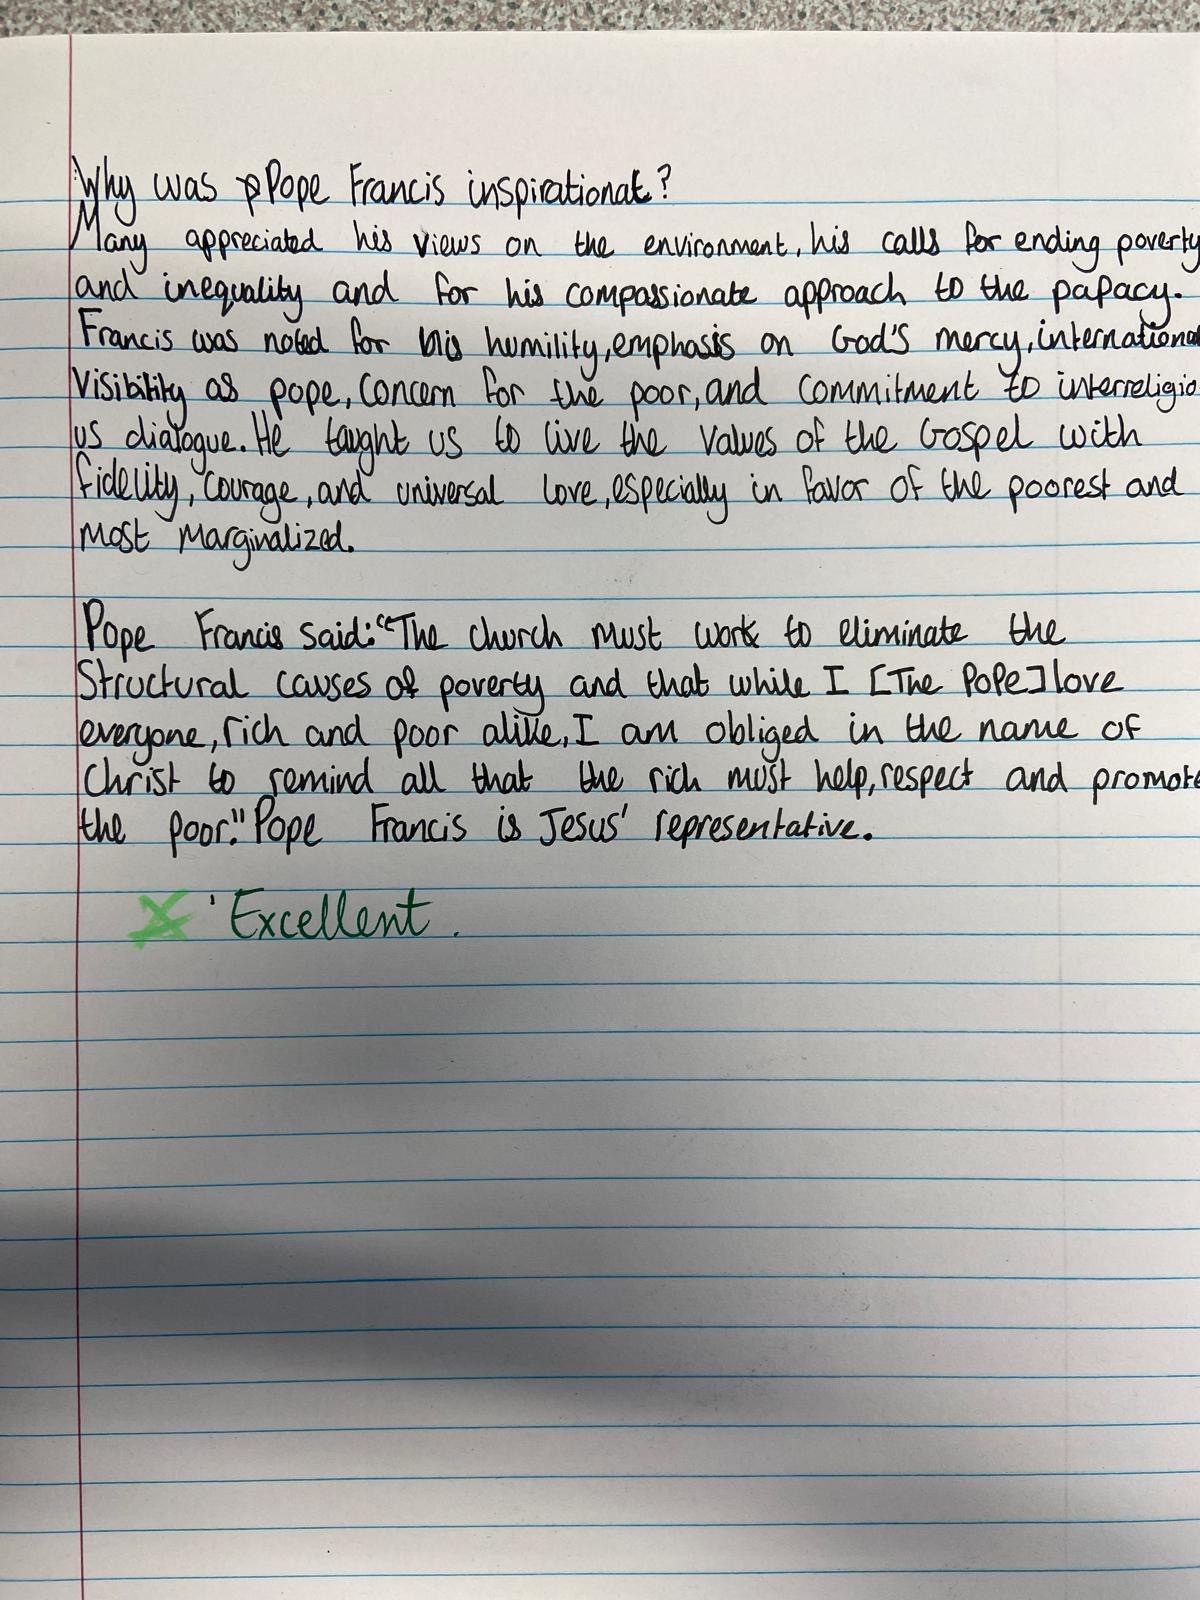 Why was Pope Francis inspirational?
Many appreciated his views on the environment, his calls for ending poverty
and inequality and for his compassionate approach to the papacy.
Francis was noted for his humility, emphasis on God's mercy, international
visibility as pope, concern for the poor, and commitment to interreligio
us dialogue. He taught us to live the values of the Gospel with
fidelity, courage, and universal love, especially in favor of the poorest and
most marginalized.
Pope Francis said: "The church must work to eliminate the
structural causes of poverty and that while I [The Pope] love
everyone, rich and poor alike, I am obliged in the name of
Christ to remind all that the rich must help, respect and promote
the poor." Pope Francis is Jesus' representative.
Excellent.